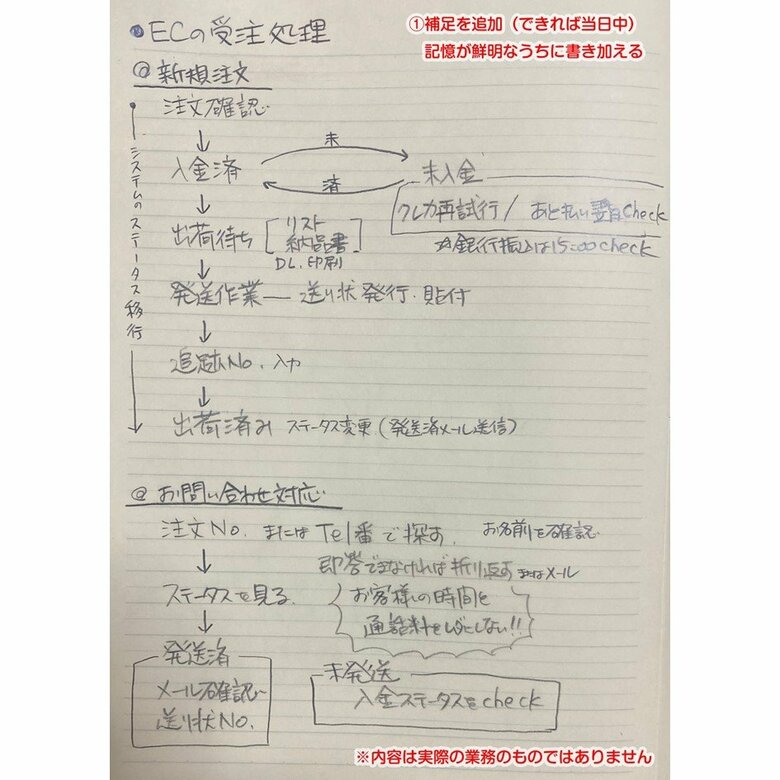 ①補足を追加（できれば当日中）
記憶が鮮明なうちに書き加える
●ECの受注処理
@新規注文
注文確認
↓
入金済
未
済
未入金
クレカ再試行/あと払い審査check
☆銀行振込は15:00check
↓
出荷待ち[リスト
納品書]
DL.印刷
↓
発送作業—送り状発行.貼付
↓
追跡No.入力
↓
出荷済み ステータス変更(発送済メール送信)
システムのステータス移行
@お問い合わせ対応
注文No. またはTel番で探す. お名前を確認
↓
即答できなければ折り返すまたはメール
ステータスを見る.
お客様の時間と
通話料をムダにしない!!
↓
発送済
メール確認
送り状No.
未発送
入金ステータスをcheck
※内容は実際の業務のものではありません